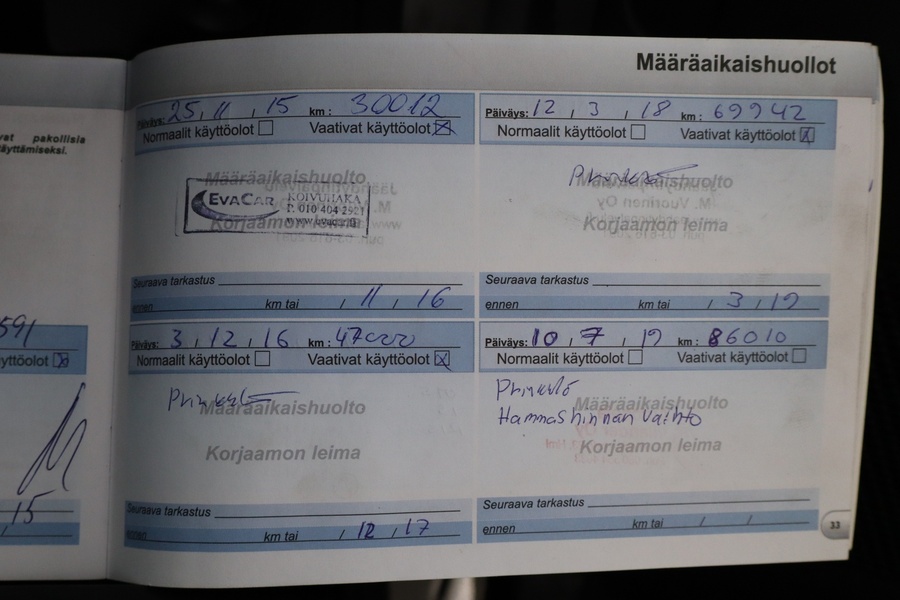 Määräaikaishuollot
vat pakollisia
äyttämiseksi.
591
yttöolot
15
Päiväys: 25, 11, 15 km: 30012
Normaalit käyttöolot Vaativat käyttöolot
Määräaikaishuolto
EVACAR KOIVUHAKA
P. 010 404 2521
Korjaamon leima
Seuraava tarkastus
ennen km tai , 11, 16
Päiväys: 12, 3, 18 km: 69942
Normaalit käyttöolot Vaativat käyttöolot
Määräaikaishuolto
M. Vuorinen Oy
Korjaamon leima
Seuraava tarkastus
ennen km tai , 3, 19
Päiväys: 3, 12, 16 km: 47000
Normaalit käyttöolot Vaativat käyttöolot
Määräaikaishuolto
Korjaamon leima
Seuraava tarkastus
ennen km tai , 12, 17
Päiväys: 10, 7, 19 km: 86010
Normaalit käyttöolot Vaativat käyttöolot
Määräaikaishuolto
Hammashinnan Vaihto
Korjaamon leima
Seuraava tarkastus
ennen km tai / /
33